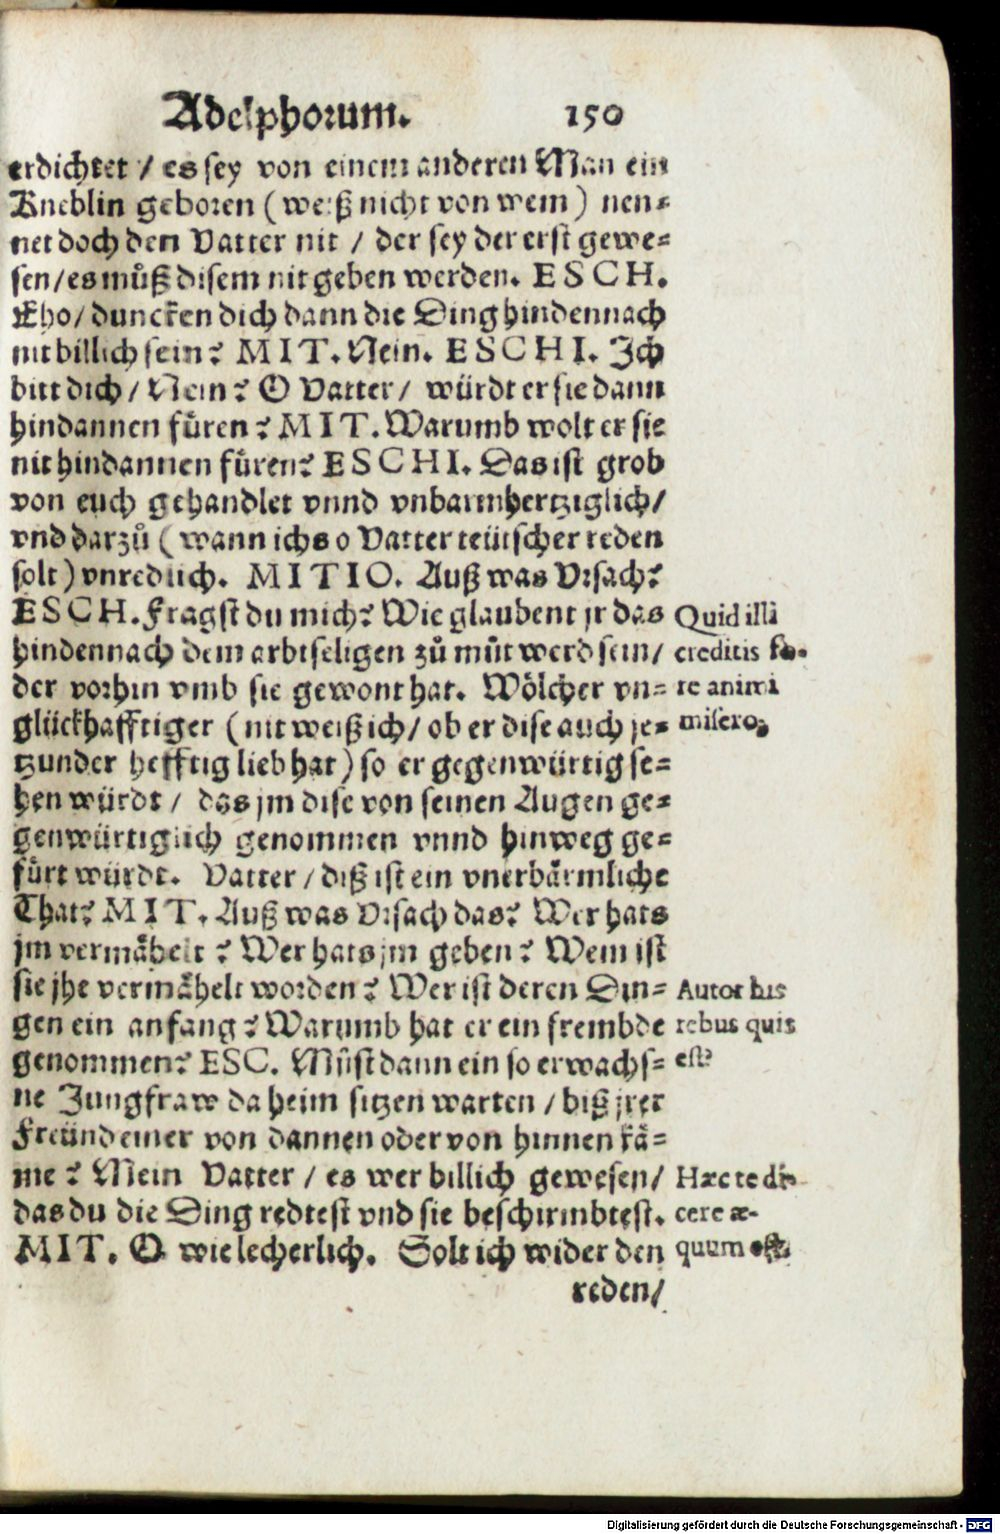 Adelphorum. 150
erdichtet / es sey von einem anderen Man ein
Kneblin geboren (weiß nicht von wem) nen⸗
net doch den Vatter nit / der sey der erst gewe⸗
sen/es můß disem nit geben werden. ESCH.
Eho/ duncken dich dann die Ding hindennach
nit billich sein? MIT. Nein. ESCHI. Ich
bitt dich/ Nein? O Vatter/ würdt er sie dann
hindannen fůren? MIT. Warumb wolt er sie
nit hindannen fůren? ESCHI. Das ist grob
von euch gehandlet vnnd vnbarmhertziglich/
vnd darzů (wann ichs o Vatter teütscher reden
solt) vnredlich. MITIO. Auß was Vrsach?
ESCH. Fragst du mich? Wie glaubent jr das
Quid illi
hindennach dem arbtseligen zů můt werd sein/
creditis fo-
der vorhin vmb sie gewont hat. Wölcher vn⸗
re animi
glückhafftiger (nit weiß ich/ ob er dise auch je⸗
misero,
tzunder hefftig lieb hat) so er gegenwürtig se⸗
hen würdt / das jm dise von seinen Augen ge⸗
genwürtiglich genommen vnnd hinweg ge⸗
fůrt würdt. Vatter / diß ist ein vnerbärmliche
That? MIT. Auß was Vrsach das? Wer hats
jm vermähelt? Wer hats jm geben? Wem ist
sie jhe vermähelt worden? Wer ist deren Din⸗
Autor his
gen ein anfang? Warumb hat er ein frembde
rebus quis
genommen? ESC. Můst dann ein so erwachs⸗
est?
ne Jungfraw daheim sitzen warten / biß jrer
Freünd einer von dannen oder von hinnen kä⸗
me? Mein Vatter / es wer billich gewesen/
Hæc te di-
das du die Ding redtest vnd sie beschirmbtest.
cere æ-
MIT. O wie lecherlich. Solt ich wider den
quum est.
reden/
Digitalisierung gefördert durch die Deutsche Forschungsgemeinschaft - DFG